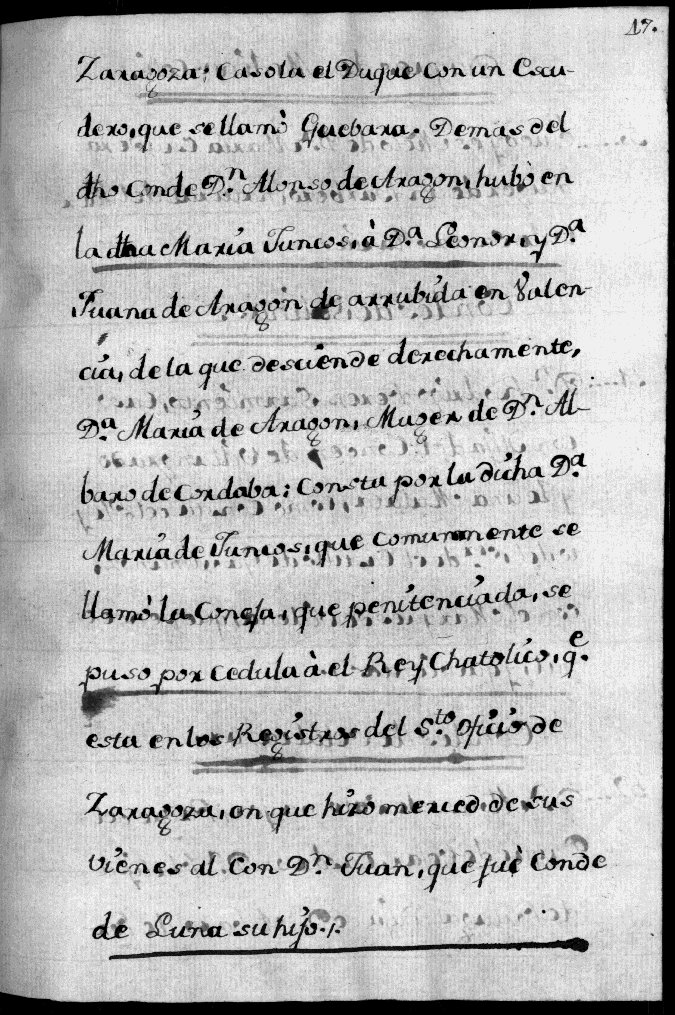 47.
Zaragoza; Casola el Duque con un Escu-
dero, que se llamò Guebara. Demas del
dho Conde D.n Alonso de Aragon, hubò en
la dha Marìa Juncos, à D.a Leonor, y D.a
Juana de Aragòn de arrubida en Valen-
cia, de la que desciende derechamente,
D.a Marìa de Aragon, Muger de D.n Al-
baro de Cordoba: Consta por la dicha D.a
Marìa de Juncos, que comunmente se
llamò la Conesa, que penitenciada, se
puso por Cedula à el Rey Chatolico, q.e
esta en los Registros del S.to Oficio de
Zaragoza, en que hizo merced de sus
vienes al Con D.n Juan, que fuè Conde
de Luna su hijo./.